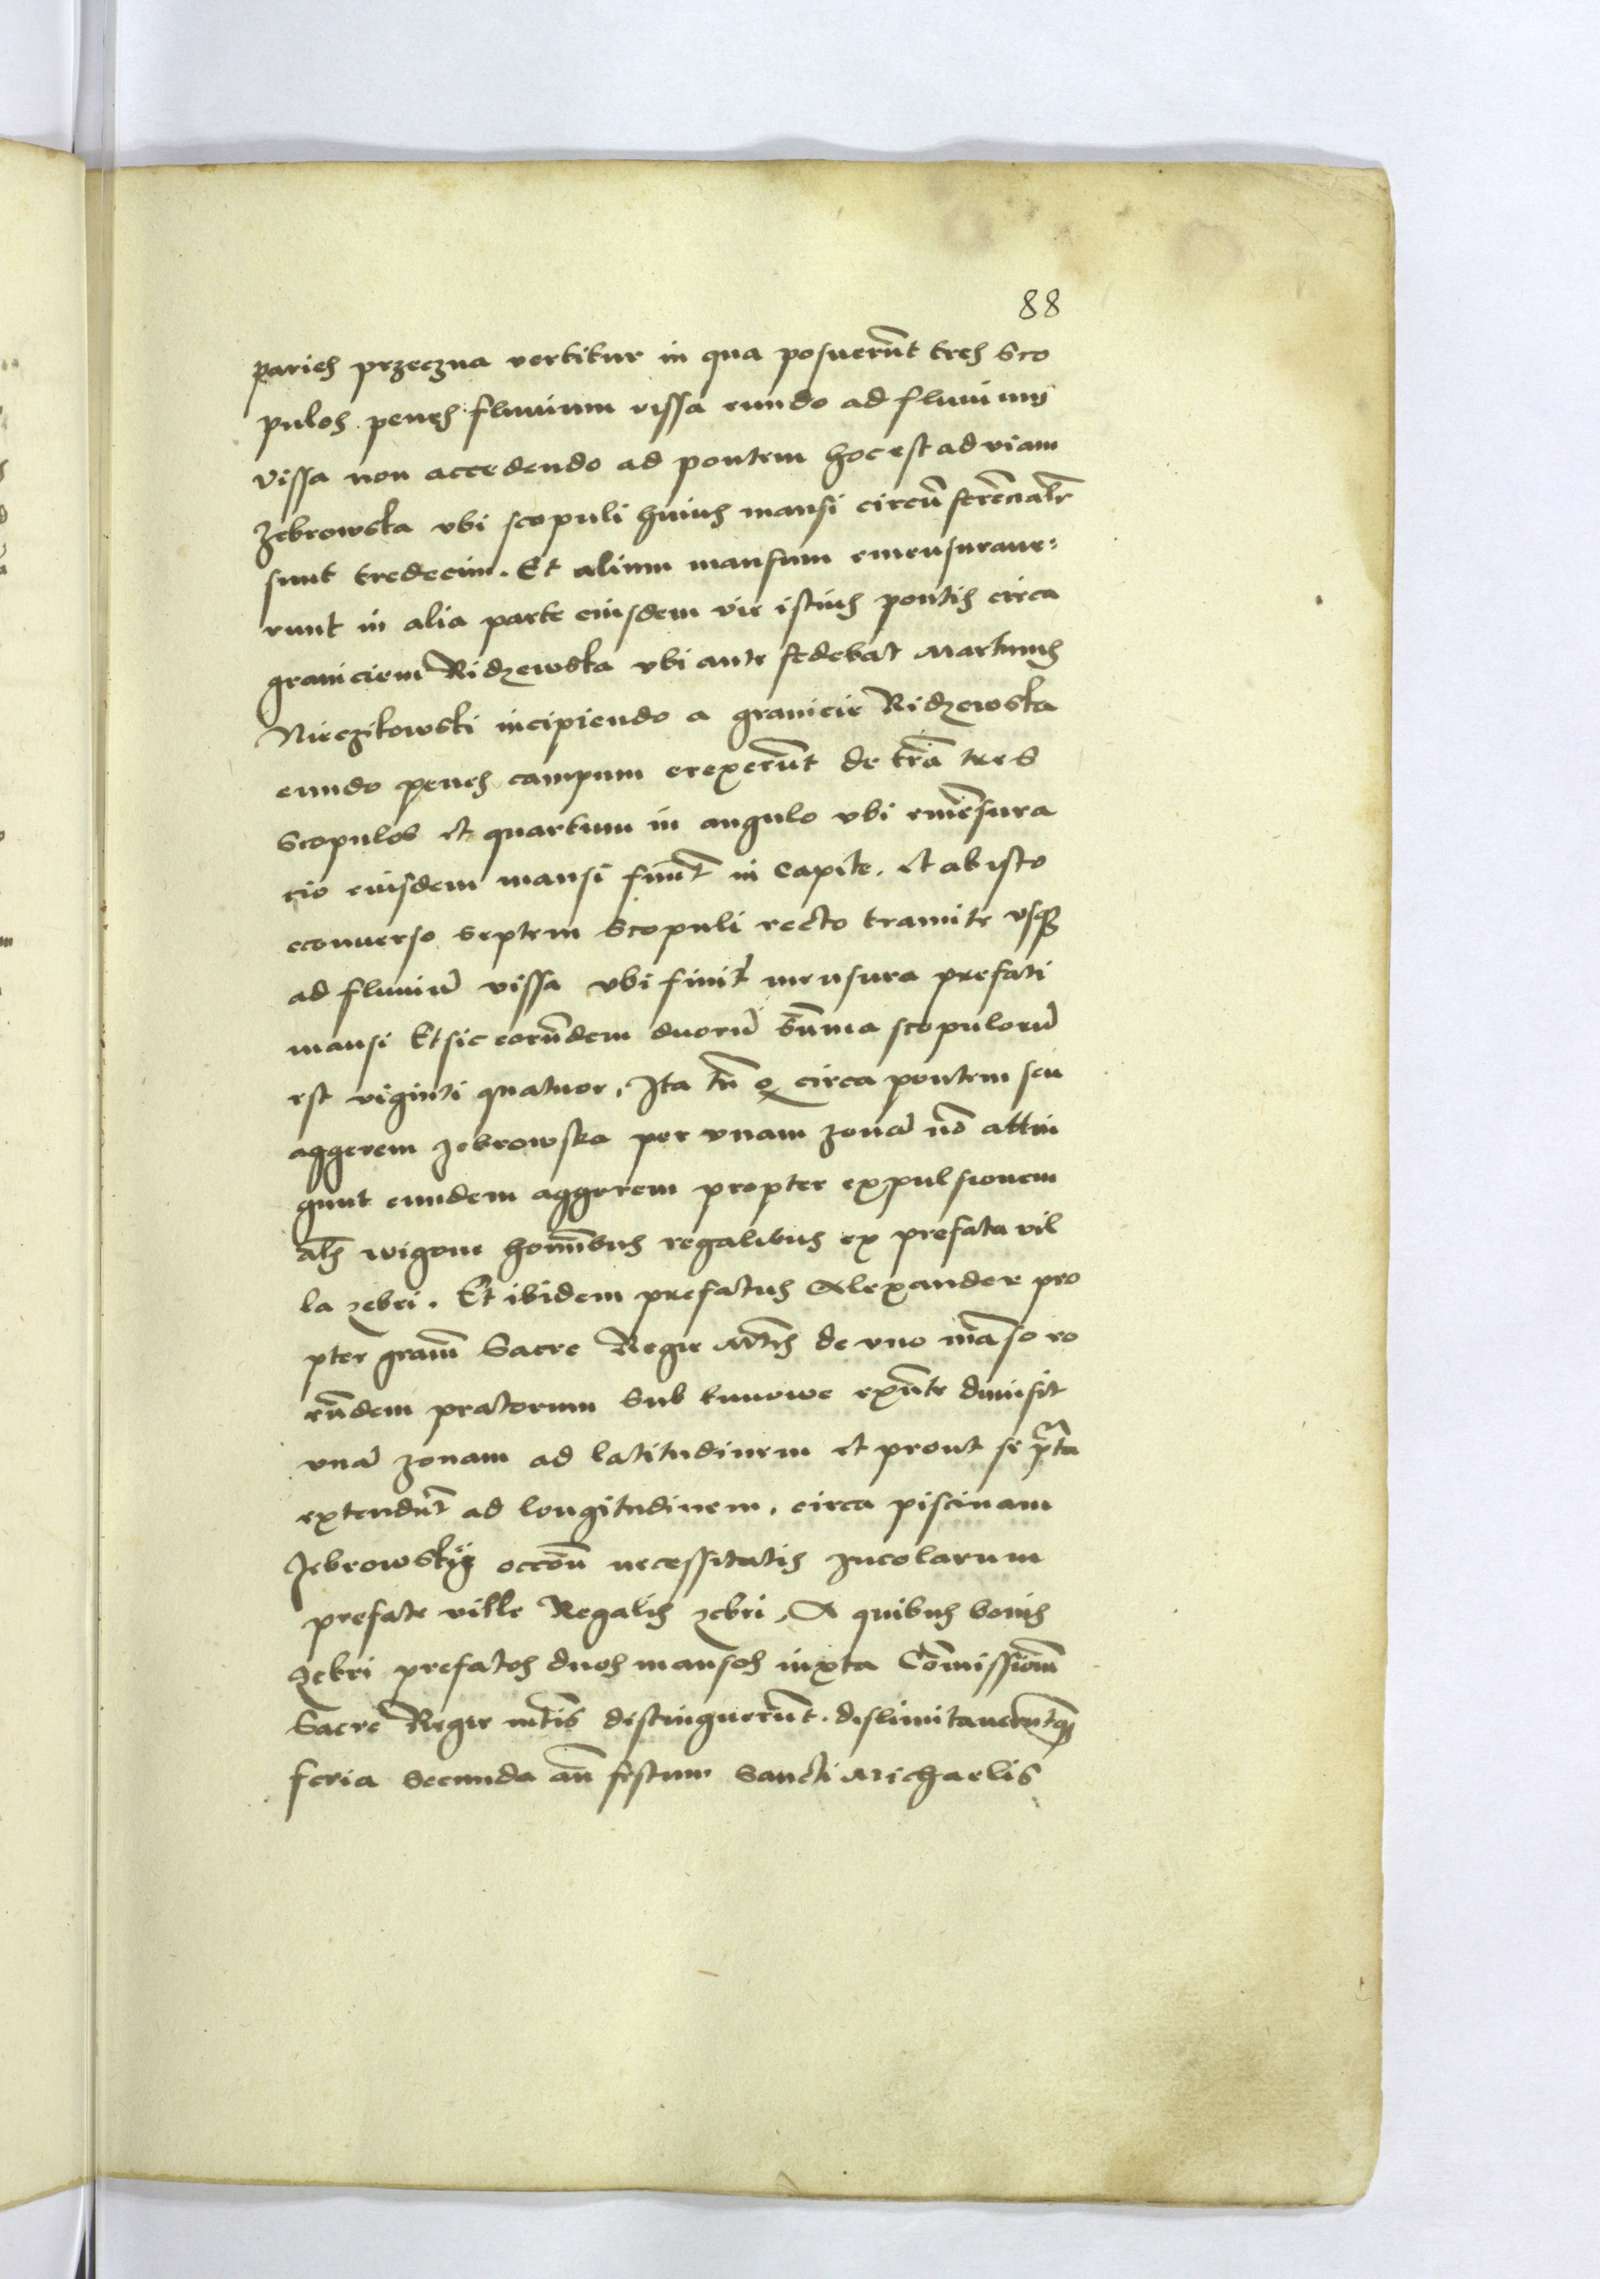 88
paries przeczna vertitur in qua posuerūt tres sco
pulos penes fluuium vissa eundo ad fluuium
vissa non accedendo ad pontem hoc est ad viam
Zebrowska vbi scopuli huius mansi circūferēcialr
sunt tredecim. Et alium mansum emensuraue:
runt in alia parte eiusdem vie istius pontis circa
graniciem Ridzewska vbi ante sedebat Martinus
Nieczikowski incipiendo a granicie Ridzewska
eundo penes campum erexerūt de trā tres
scopulos et quartum in angulo vbi emēsura
cio eiusdem mansi finit̄ in capite. et ab isto
econuerso septem scopuli recto tramite vsqȝ
ad fluuiū vissa vbi finit̄ mensura prefati
mansi Et sic eorūdem duorū sūma scopulorū
est viginti quatuor, Ita tn̄ ꝙ circa pontem seu
aggerem zebrowska per vnam zonā nō attin
gunt eundem aggerem propter expulsionem
als wigon hominībus regalibus ex prefata vil
la zebri. Et ibidem prefatus Alexander pro
pter gram̄ Sacre Regie Mtis de vno māso eo
rūdem pratorum sub knnowe exn̄te dimisit
vnā zonam ad latitudinem et prout se prta
extendūt ad longitudinem, circa piscinam
Zebrowskÿ occōn necessitatis Incolarum
prefate ville Regalis zebri, A quibus bonis
Zebri prefatos duos mansos iuxta Cōmissionē
Sacre Regie mtis distinguerūt. dislimitaverūtqȝ
feria secunda an̄ festum Sancti Michaelis